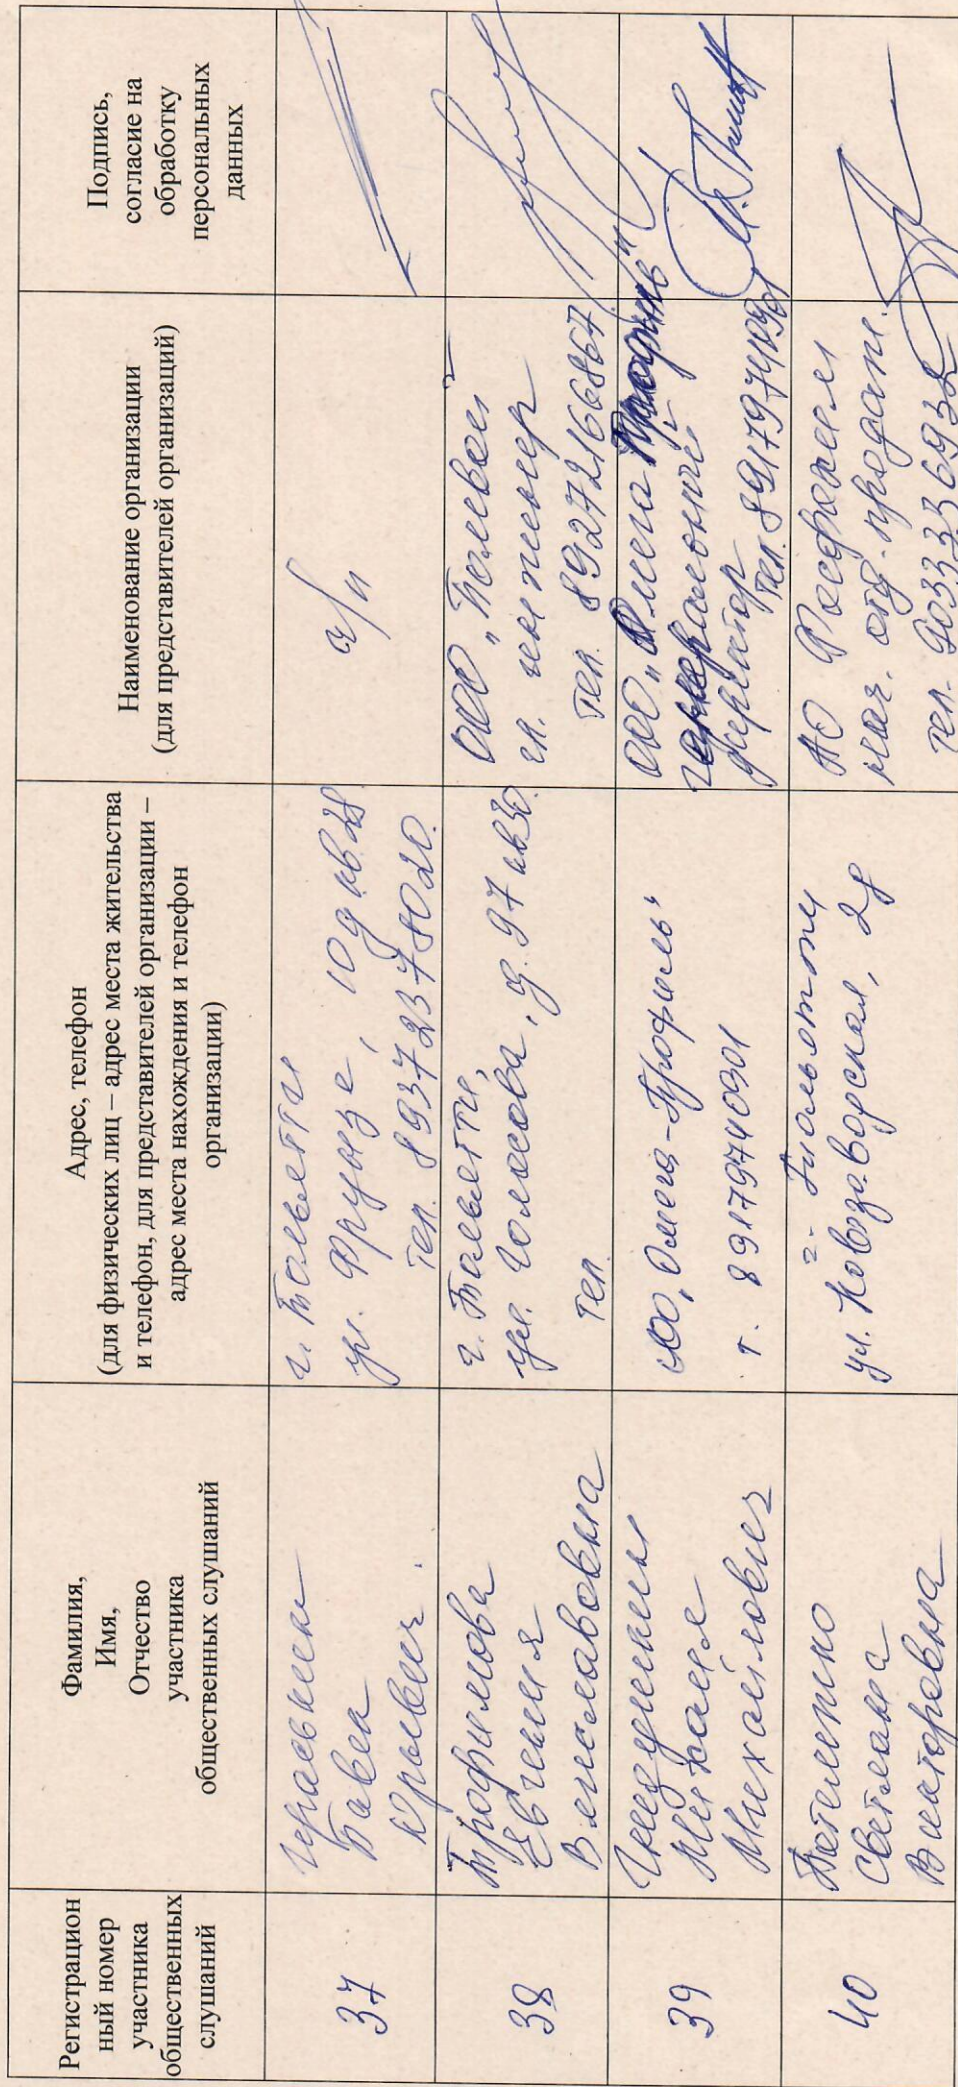 Регистрацион
ный номер
участника
общественных
слушаний
Фамилия,
Имя,
Отчество
участника
общественных слушаний
Адрес, телефон
(для физических лиц – адрес места жительства
и телефон, для представителей организации –
адрес места нахождения и телефон
организации)
Наименование организации
(для представителей организаций)
Подпись,
согласие на
обработку
персональных
данных
37
Павел
Юрьевич
г. Тольятти
ул. Фрунзе, 10д кв 28
тел. 89372378020.
ч/л
38
Трофимова
Евгения
Вячеславовна
г. Тольятти,
ул. Голосова, д. 97 кв 30.
тел.
ООО "Полевей
гл. инженер
тел. 89272166867
39
Михаил
Михайлович
ООО "Омега-Профиль"
т. 89179740901
ООО "Омега Профиль"
генеральный
директор
тел. 89179740901
40
Светлана
Викторовна
г. Тольятти
ул. Новозаводская, 2
АО
нач. отд. продаж
тел. 9033336932